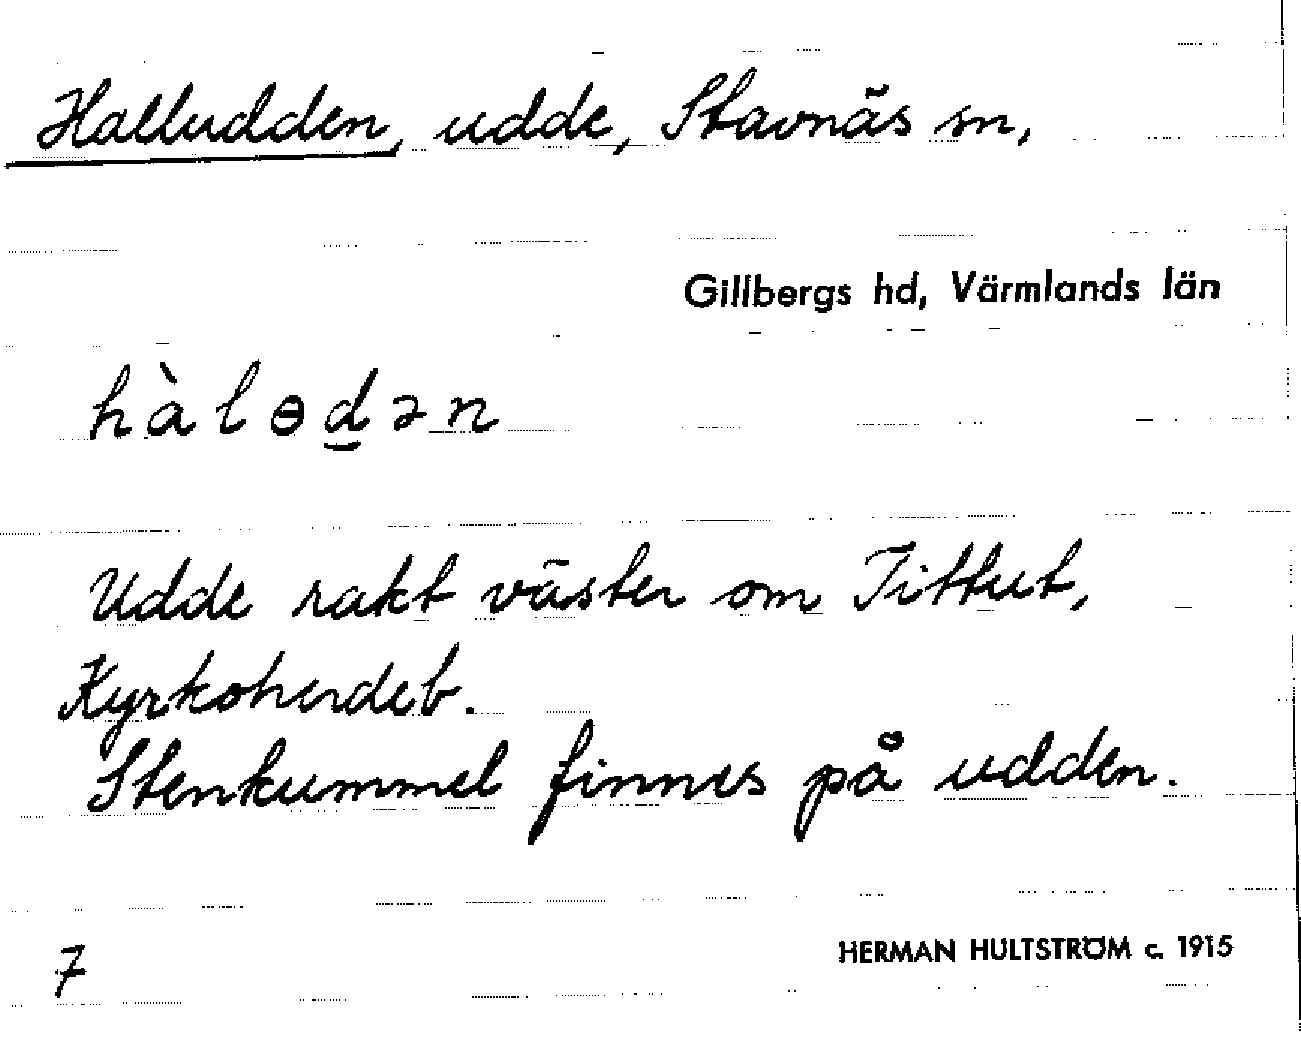 Halludden, udde, Stavnäs sn,
Gillbergs hd, Värmlands län
hàlɵd̲ən
Udde rakt väster om Tittut,
Kyrkoherdeb.
Stenkummel finnes på udden.
7
HERMAN HULTSTRÖM c. 1915